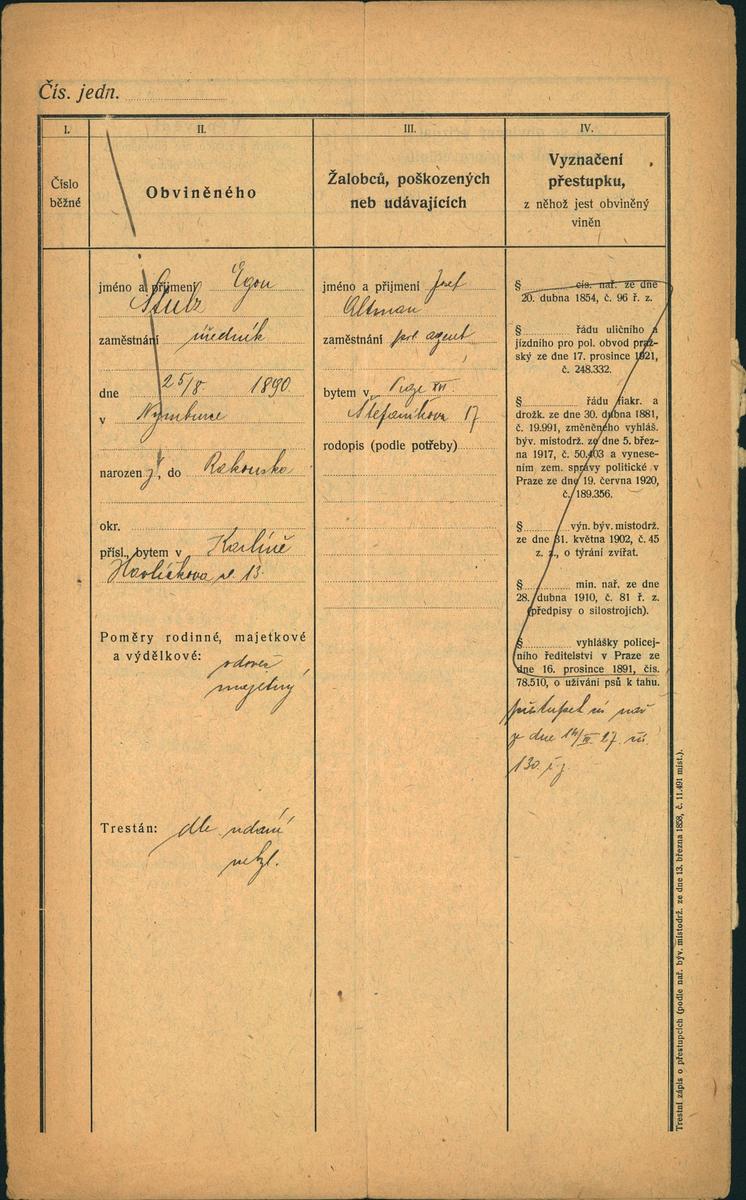 Čís. jedn.
I.
Číslo
běžné
II.
Obviněného
jméno a příjmení Egon
Stulz
zaměstnání úředník
dne 25/8. 1890.
v Nymburce
narozen ý, do Rakouska
okr.
přísl., bytem v Karlíně
Havlíčkova ul. 13.
Poměry rodinné, majetkové
a výdělkové:
vdovec
majetný
Trestán: dle udání
III.
Žalobců, poškozených
neb udávajících
jméno a příjmení Josef
Altman
zaměstnání pol. agent
bytem v Praze XVI.
Štefánikova 17
rodopis (podle potřeby)
IV.
Vyznačení
přestupku,
z něhož jest obviněný
viněn
§ cís. nař. ze dne
20. dubna 1854, č. 96 ř. z.
§ řádu uličního a
jízdního pro pol. obvod praž-
ský ze dne 17. prosince 1921,
č. 248.332.
§ řádu fiakr. a
drožk. ze dne 30. dubna 1881,
č. 19.991, změněného vyhláš.
býv. místodrž. ze dne 5. břez-
na 1917, č. 50.403 a vynese-
ním zem. správy politické v
Praze ze dne 19. června 1920,
č. 189.356.
§ výn. býv. místodrž.
ze dne 31. května 1902, č. 45
z. z., o týrání zvířat.
§ min. nař. ze dne
28. dubna 1910, č. 81 ř. z.
(předpisy o silostrojích).
§ vyhlášky policej-
ního ředitelství v Praze ze
dne 16. prosince 1891, čís.
78.510, o užívání psů k tahu.
přestupek nař
z dne 27.
130.
Trestní zápis o přestupcích (podle nař. býv. místodrž. ze dne 13. března 1858, č. 11.491 míst.).